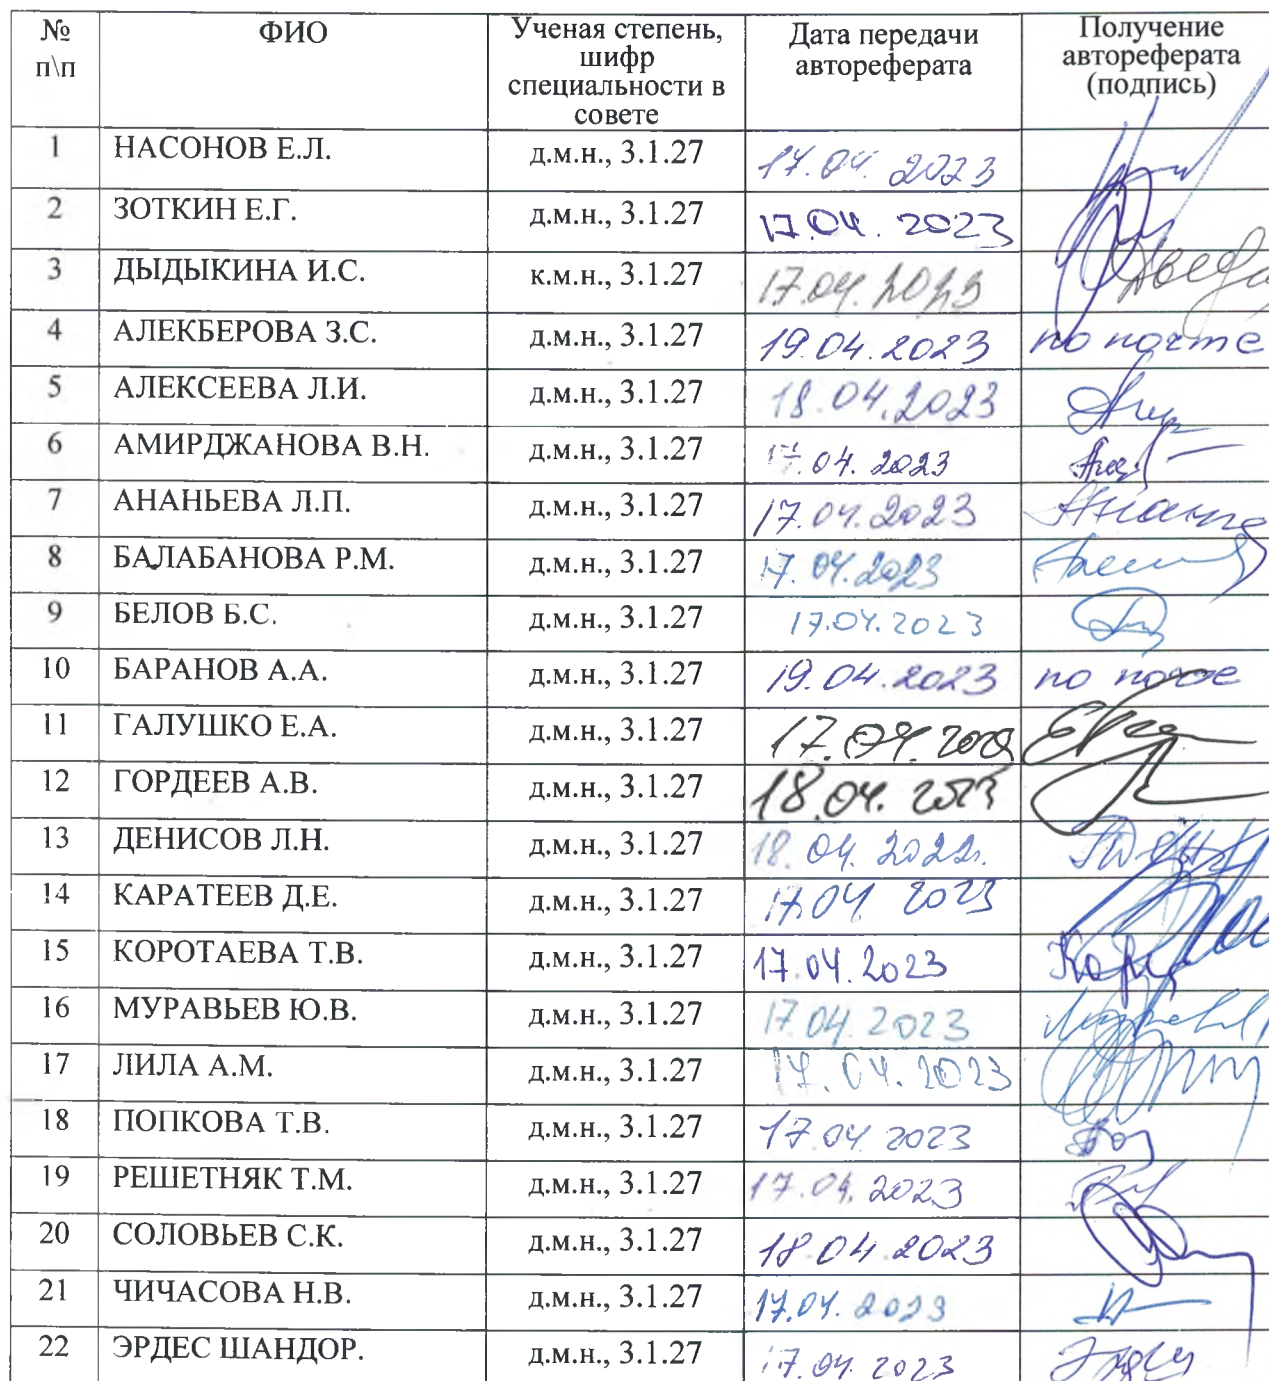 № п\п ФИО Ученая степень, шифр специальности в совете Дата передачи автореферата Получение автореферата (подпись)
1 НАСОНОВ Е.Л. д.м.н., 3.1.27 17.04. 2023
2 ЗОТКИН Е.Г. д.м.н., 3.1.27 17.04. 2023
3 ДЫДЫКИНА И.С. к.м.н., 3.1.27 17.04. 2023
4 АЛЕКБЕРОВА З.С. д.м.н., 3.1.27 19.04.2023 по почте
5 АЛЕКСЕЕВА Л.И. д.м.н., 3.1.27 18.04.2023
6 АМИРДЖАНОВА В.Н. д.м.н., 3.1.27 17.04. 2023
7 АНАНЬЕВА Л.П. д.м.н., 3.1.27 17.04.2023
8 БАЛАБАНОВА Р.М. д.м.н., 3.1.27 17.04.2023
9 БЕЛОВ Б.С. д.м.н., 3.1.27 17.04.2023
10 БАРАНОВ А.А. д.м.н., 3.1.27 19.04.2023 по почте
11 ГАЛУШКО Е.А. д.м.н., 3.1.27 17.04.2023
12 ГОРДЕЕВ А.В. д.м.н., 3.1.27 18.04. 2023
13 ДЕНИСОВ Л.Н. д.м.н., 3.1.27 18.04.2022г.
14 КАРАТЕЕВ Д.Е. д.м.н., 3.1.27 17.04 2023
15 КОРОТАЕВА Т.В. д.м.н., 3.1.27 17.04.2023
16 МУРАВЬЕВ Ю.В. д.м.н., 3.1.27 17.04.2023
17 ЛИЛА А.М. д.м.н., 3.1.27 17.04.2023
18 ПОПКОВА Т.В. д.м.н., 3.1.27 17.04 2023
19 РЕШЕТНЯК Т.М. д.м.н., 3.1.27 17.04. 2023
20 СОЛОВЬЕВ С.К. д.м.н., 3.1.27 18.04 2023
21 ЧИЧАСОВА Н.В. д.м.н., 3.1.27 17.04. 2023
22 ЭРДЕС ШАНДОР. д.м.н., 3.1.27 17.04. 2023